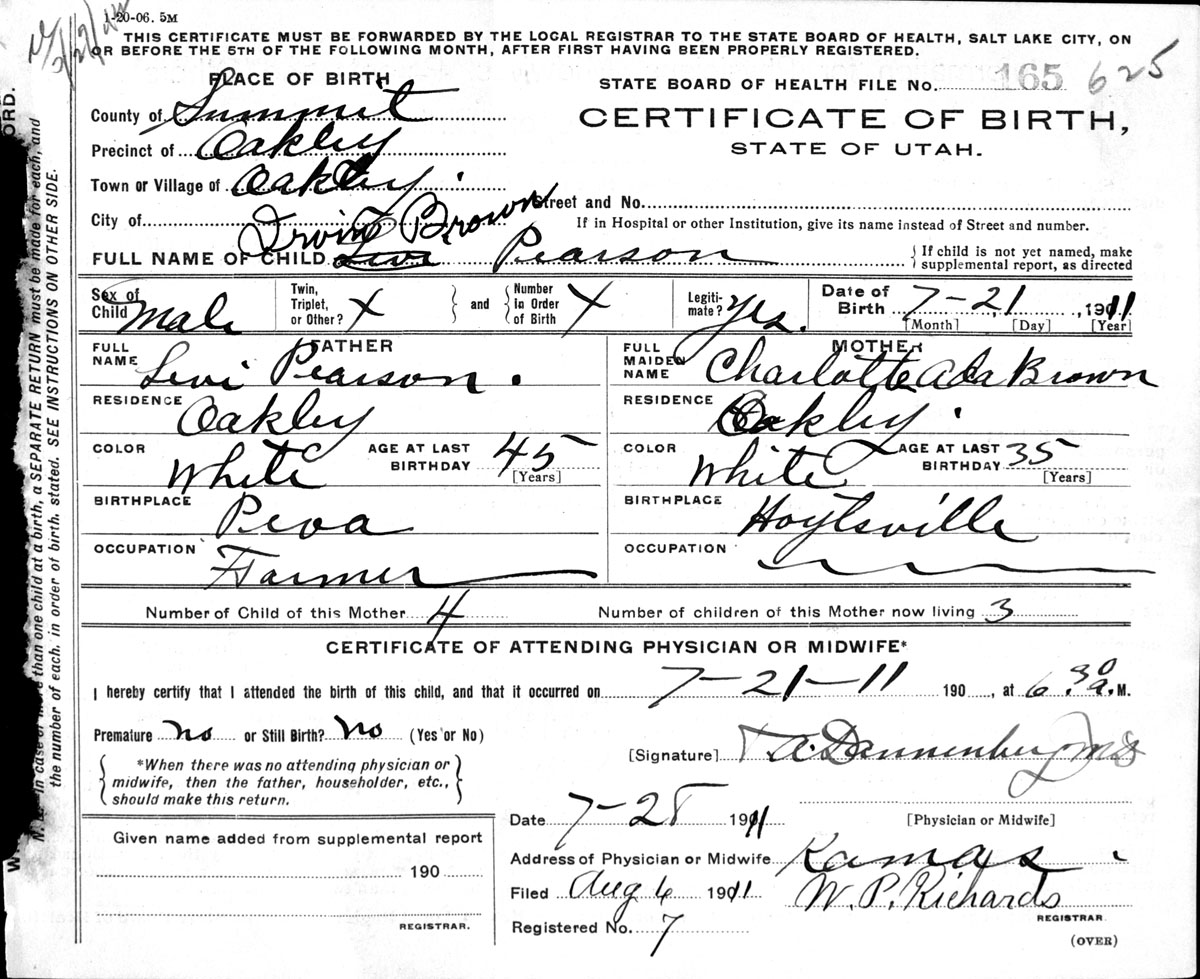 1-20-06. 5M
THIS CERTIFICATE MUST BE FORWARDED BY THE LOCAL REGISTRAR TO THE STATE BOARD OF HEALTH, SALT LAKE CITY, ON
OR BEFORE THE 5TH OF THE FOLLOWING MONTH, AFTER FIRST HAVING BEEN PROPERLY REGISTERED.
PLACE OF BIRTH
STATE BOARD OF HEALTH FILE No. 165 625
County of Summit
CERTIFICATE OF BIRTH,
Precinct of Oakley
STATE OF UTAH.
Town or Village of Oakley.
City of
Street and No.
If in Hospital or other Institution, give its name instead of Street and number.
Irvin Brown
FULL NAME OF CHILD Levi Pearson
{ If child is not yet named, make
supplemental report, as directed
Sex of Child Male
Twin, Triplet, or Other? X
and
Number in Order of Birth X
Legitimate? Yes.
Date of Birth 7-21, 1911
[Month] [Day] [Year]
FATHER
FULL NAME Levi Pearson.
RESIDENCE Oakley
COLOR White
AGE AT LAST BIRTHDAY 45
[Years]
BIRTHPLACE Peoa
OCCUPATION Farmer
MOTHER
FULL MAIDEN NAME Charlotte Ada Brown
RESIDENCE Oakley.
COLOR White
AGE AT LAST BIRTHDAY 35
[Years]
BIRTHPLACE Hoytsville
OCCUPATION
Number of Child of this Mother 4
Number of children of this Mother now living 3
CERTIFICATE OF ATTENDING PHYSICIAN OR MIDWIFE*
I hereby certify that I attended the birth of this child, and that it occurred on 7-21-11 190 , at 6.30 a.M.
Premature no or Still Birth? no (Yes or No)
[Signature] A. Dannenberg MD
{ *When there was no attending physician or
midwife, then the father, householder, etc.,
should make this return. }
Date 7-28 1911
[Physician or Midwife]
Given name added from supplemental report
190
REGISTRAR.
Address of Physician or Midwife Kamas
Filed Aug 6 1911
W. P. Richards
REGISTRAR
Registered No. 7
(OVER)
ORD.
than one child at a birth, a SEPARATE RETURN must be made for each, and
the number of each, in order of birth, stated. SEE INSTRUCTIONS ON OTHER SIDE.